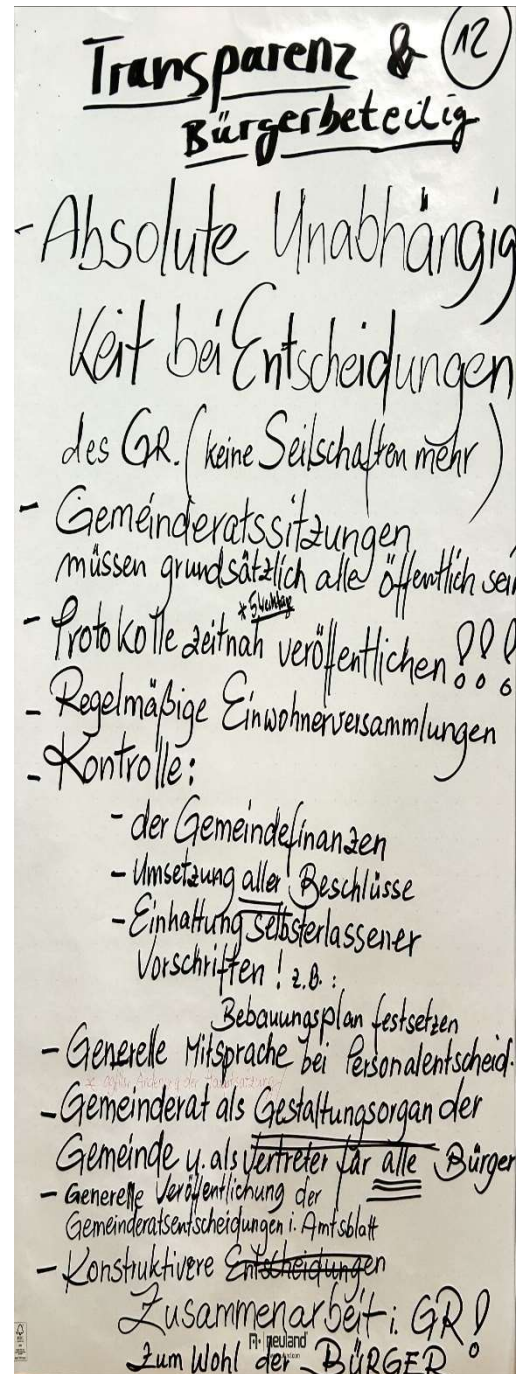 Transparenz & 12
Bürgerbeteilig
- Absolute Unabhängig
Keit bei Entscheidungen
des GR. (keine Seilschaften mehr)
- Gemeinderatssitzungen
müssen grundsätzlich alle öffentlich sein
- Protokolle zeitnah veröffentlichen!!!
- Regelmäßige Einwohnerversammlungen
- Kontrolle:
- der Gemeindefinanzen
- Umsetzung aller Beschlüsse
- Einhaltung selbsterlassener
Vorschriften! z.B.:
Bebauungsplan festsetzen
- Generelle Mitsprache bei Personalentscheid.
- Gemeinderat als Gestaltungsorgan der
Gemeinde u. als Vertreter für alle Bürger
- Generelle Veröffentlichung der
Gemeinderatsentscheidungen i. Amtsblatt
- Konstruktivere Entscheidungen
Zusammenarbeit i. GR!
neuland
Zum Wohl der BÜRGER